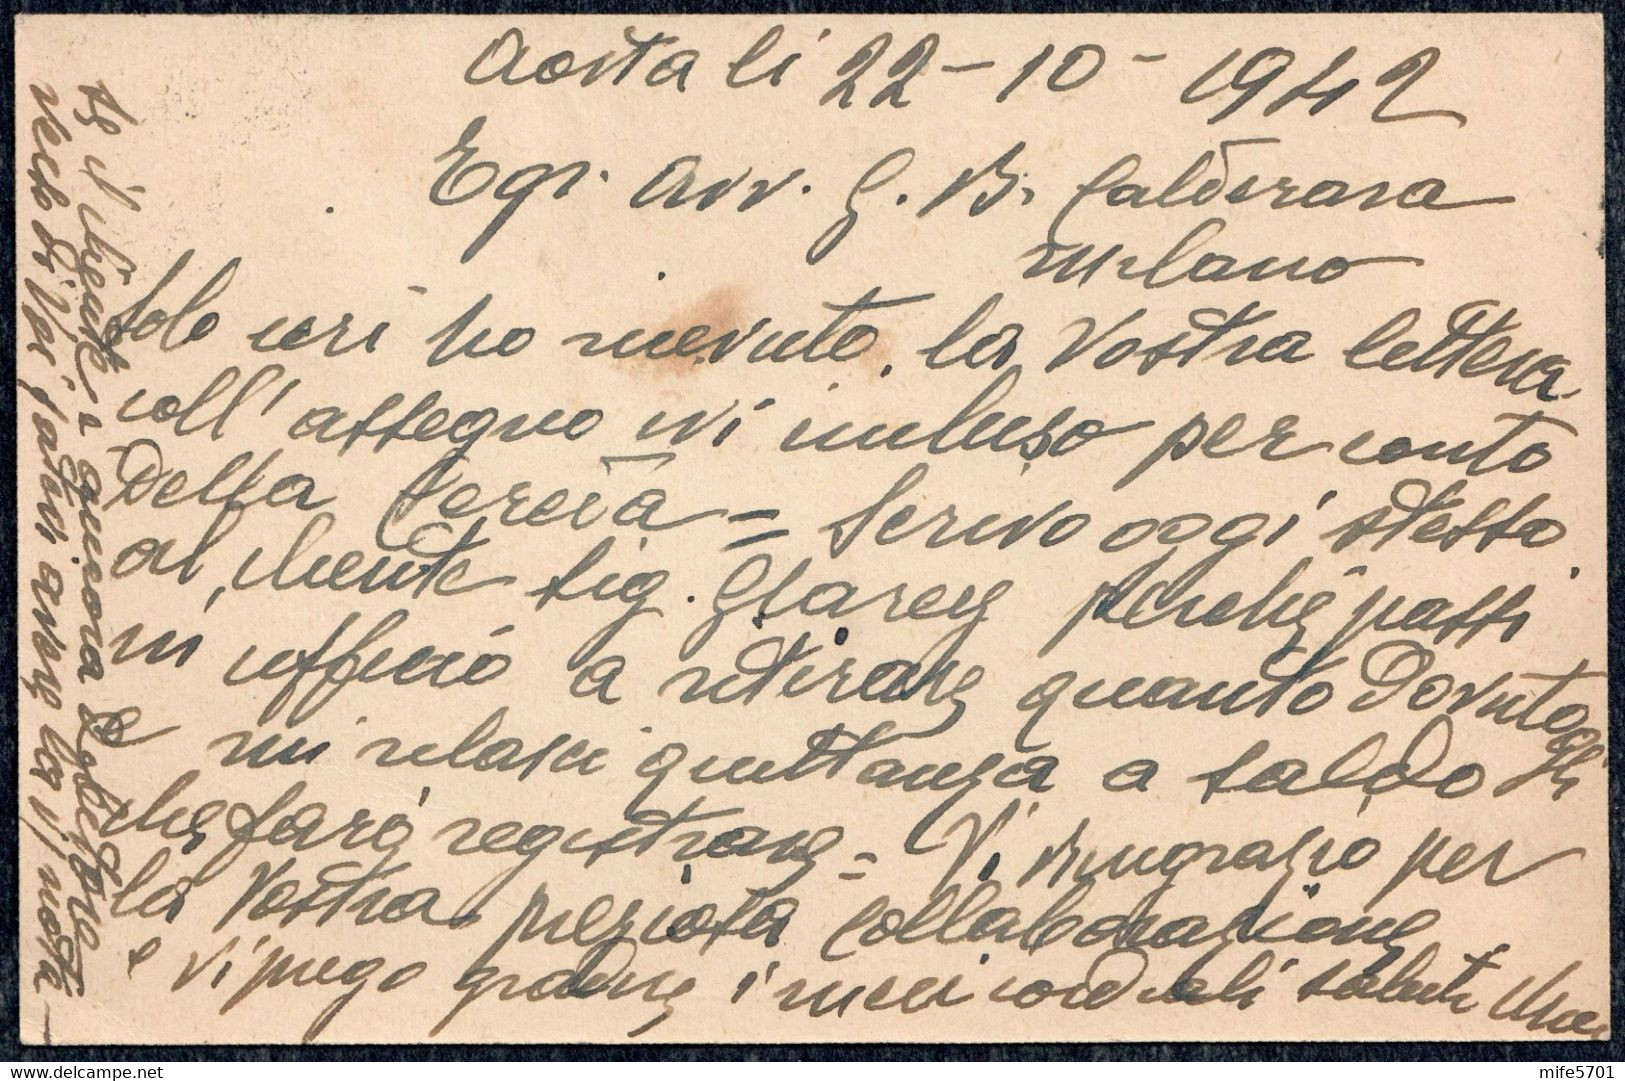 Aosta li 22-10-1942
Egr. Avv. G. B. Calderara
Milano
Solo ieri ho ricevuto la Vostra lettera
coll' assegno ivi incluso per conto
Della Vereia = Scrivo oggi stesso
al cliente Sig. Glarey perchè passi
in ufficio a ritirare quanto Dovutogli
e mi rilasci quittanza a saldo
che farò registrare = Vi ringrazio per
la Vostra preziosa collaborazione
e Vi prego gradire i miei cordiali saluti
Se il cliente
vedrò di Voi fatevi avere la V/ nota
mife5701